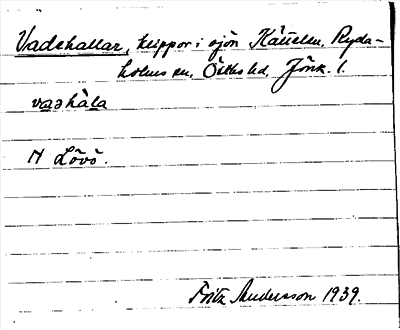 Vadshallar, klippor i sjön Kätteln, Ryda-
holms sn, Östbo hd, Jönk. l.
vashàla
N Lövö.
Fritz Andersson 1939.